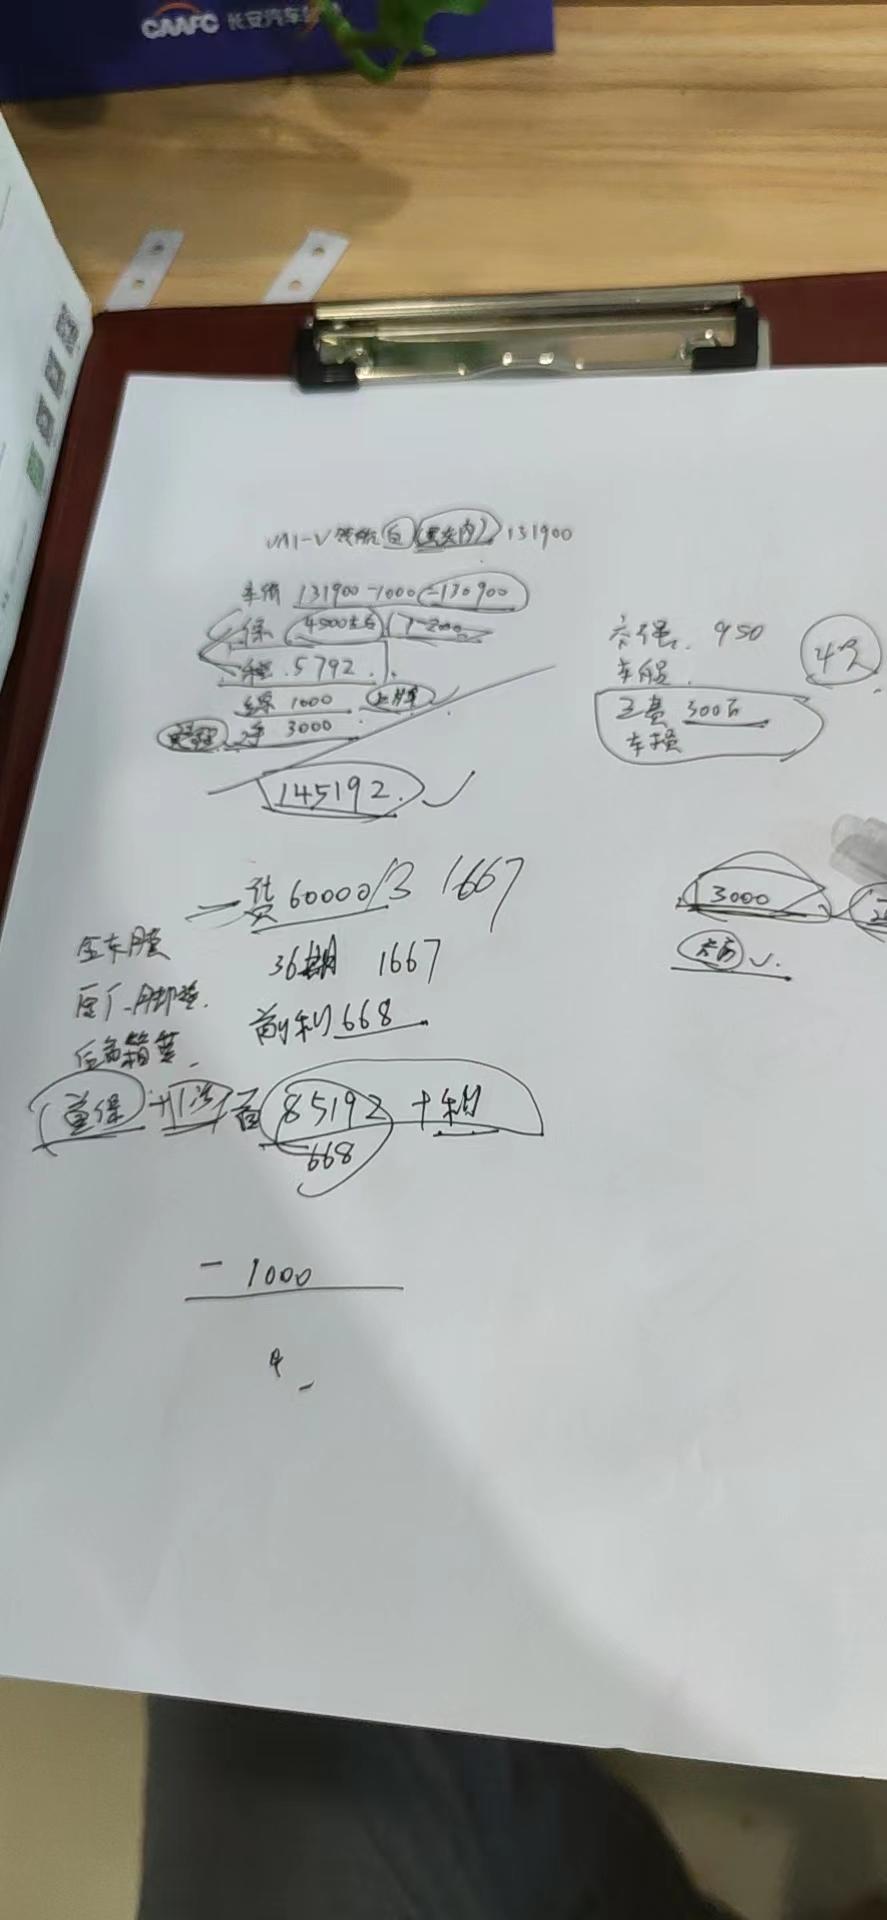 CAAFC 长安汽车金融
UNI-V 领航 白 (黑灰内) 131900
车价 131900-1000=130900
保 4500左右
税 5792
综 1000 上牌
手 3000
145192
交强 950
车船
三责 300万
车损
4次
贷 60000/3 1667
36期 1667
前利 668
3000
全车膜
原厂脚垫
后备箱垫
首保 +1次
首 85192 +利
668
- 1000